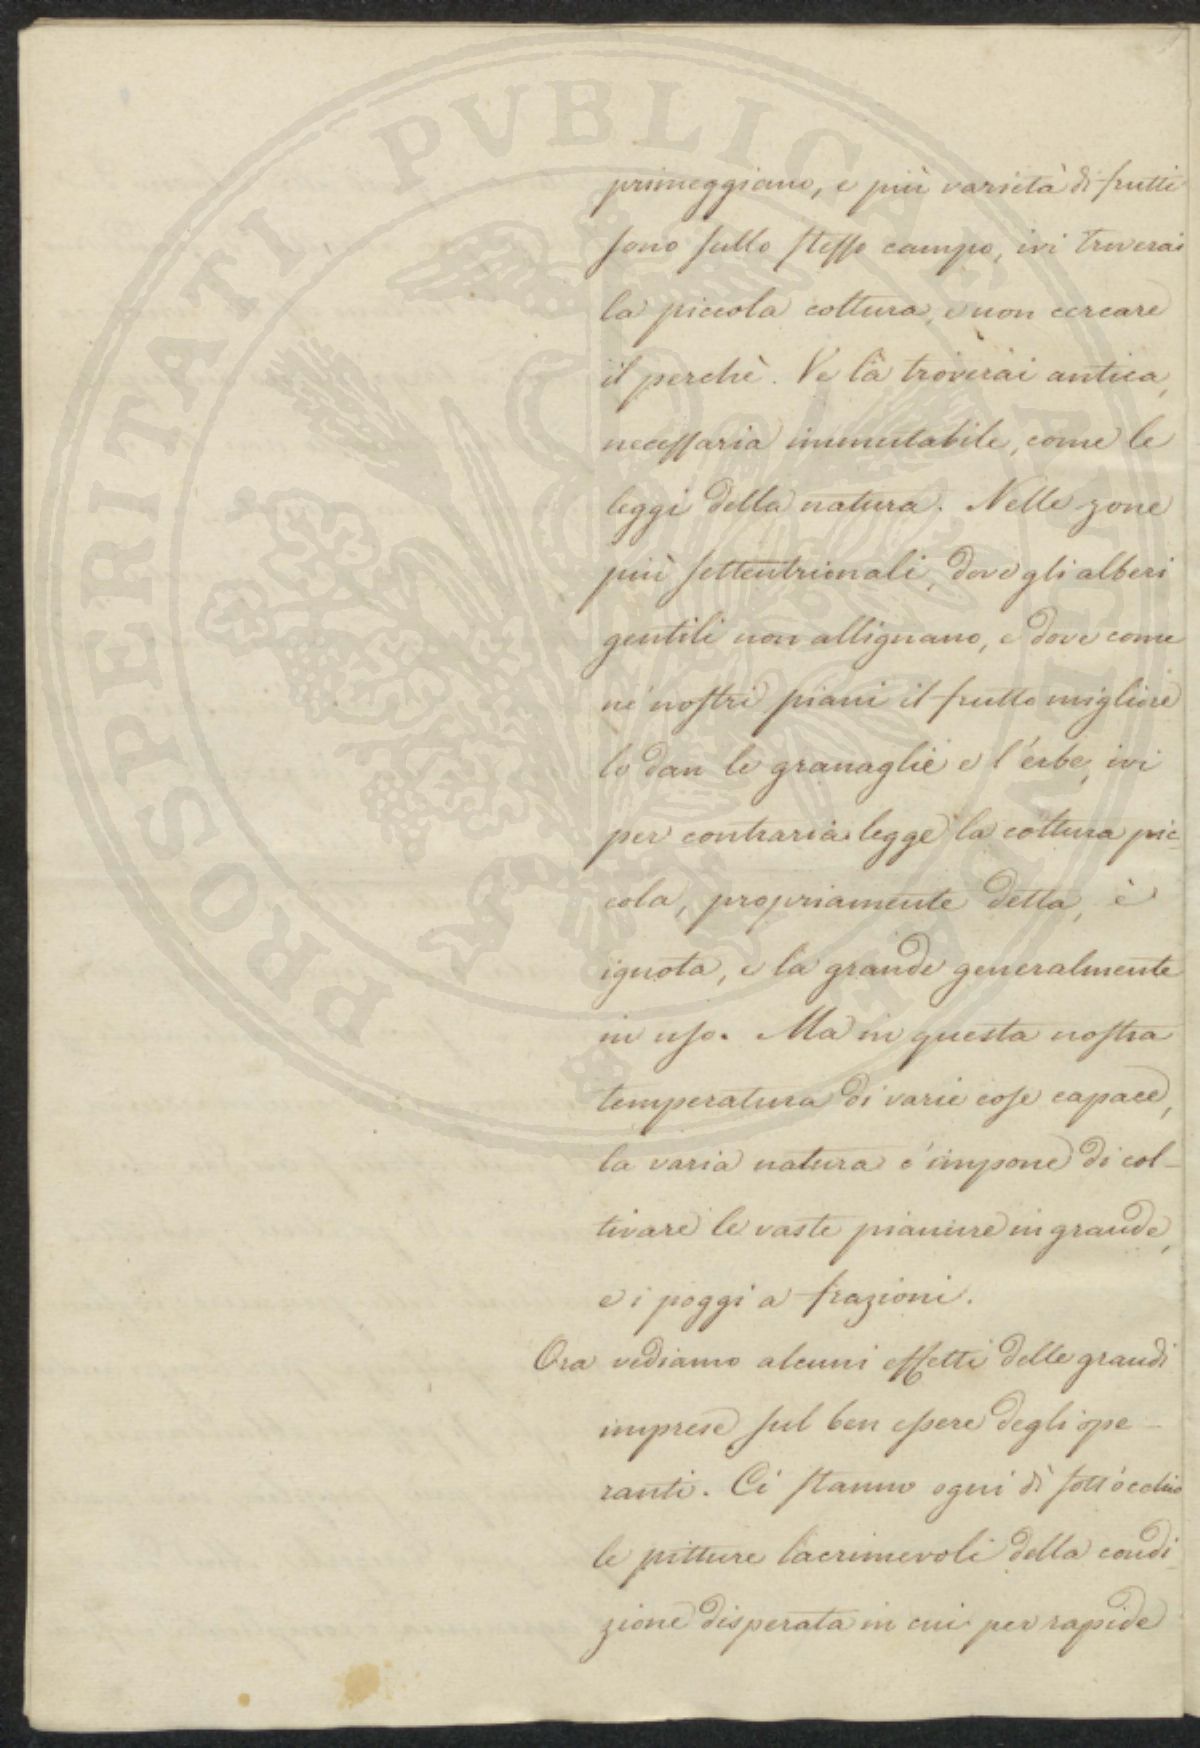 primeggiano, e più varietà di frutti
sono sullo stesso campo, ivi troverai
la piccola coltura, e non cercare
il perchè. Ve la troverai antica,
necessaria immutabile, come le
leggi della natura. Nelle zone
più settentrionali, dove gli alberi
gentili non allignano, e dove come
ne' nostri piani il frutto migliore
lo dan le granaglie e l'erbe, ivi
per contraria legge la coltura pic-
cola, propriamente detta, è
ignota, e la grande generalmente
in uso. Ma in questa nostra
temperatura di varie cose capace,
la varia natura c'impone di col-
tivare le vaste pianure in grande,
e i poggi a frazioni.
Ora vediamo alcuni effetti delle grandi
imprese sul ben essere degli ope-
ranti. Ci stanno ogni dì sott'occhio
le pitture lacrimevoli della condi-
zione disperata in cui per rapide
PROSPERITATI PVBLICAE AVGENDAE